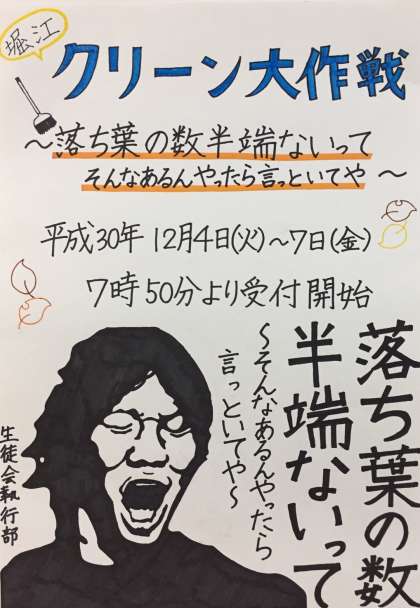 堀江
クリーン大作戦
～落ち葉の数半端ないって
そんなあるんやったら言っといてや～
平成30年 12月4日(火)～7日(金)
7時50分より受付開始
落ち葉の数
半端ないって
～そんなあるんやったら
言っといてや～
生徒会執行部